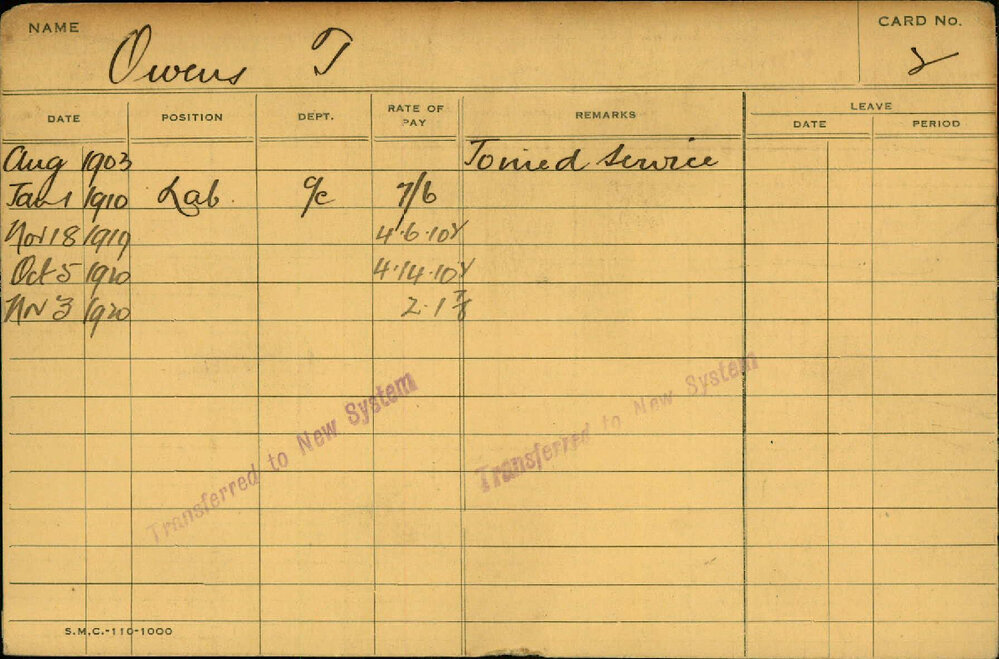 NAME Owens T CARD No. 2
DATE POSITION DEPT. RATE OF PAY REMARKS LEAVE
DATE PERIOD
Aug 1903 Joined service
Jan 1 1910 Lab c/c 7/6
Nov 18 1919 4.6.10
Oct 5 1920 4.14.10
Nov 3 1920 2.1
Transferred to New System
Transferred to New System
S.M.C.-110-1000